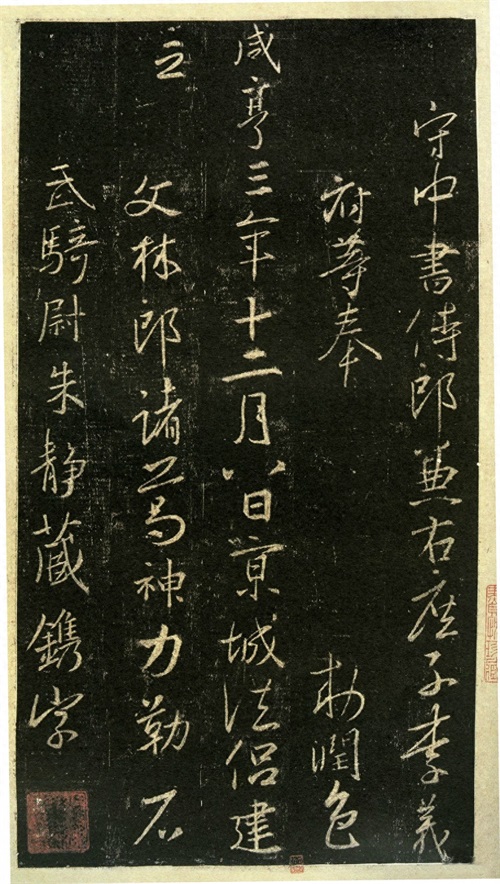 守中書侍郎兼右庶子李義
府等奉　敕潤色
咸亨三年十二月八日京城法侶建
立
文林郎諸葛神力勒石
武騎尉朱靜藏鐫字